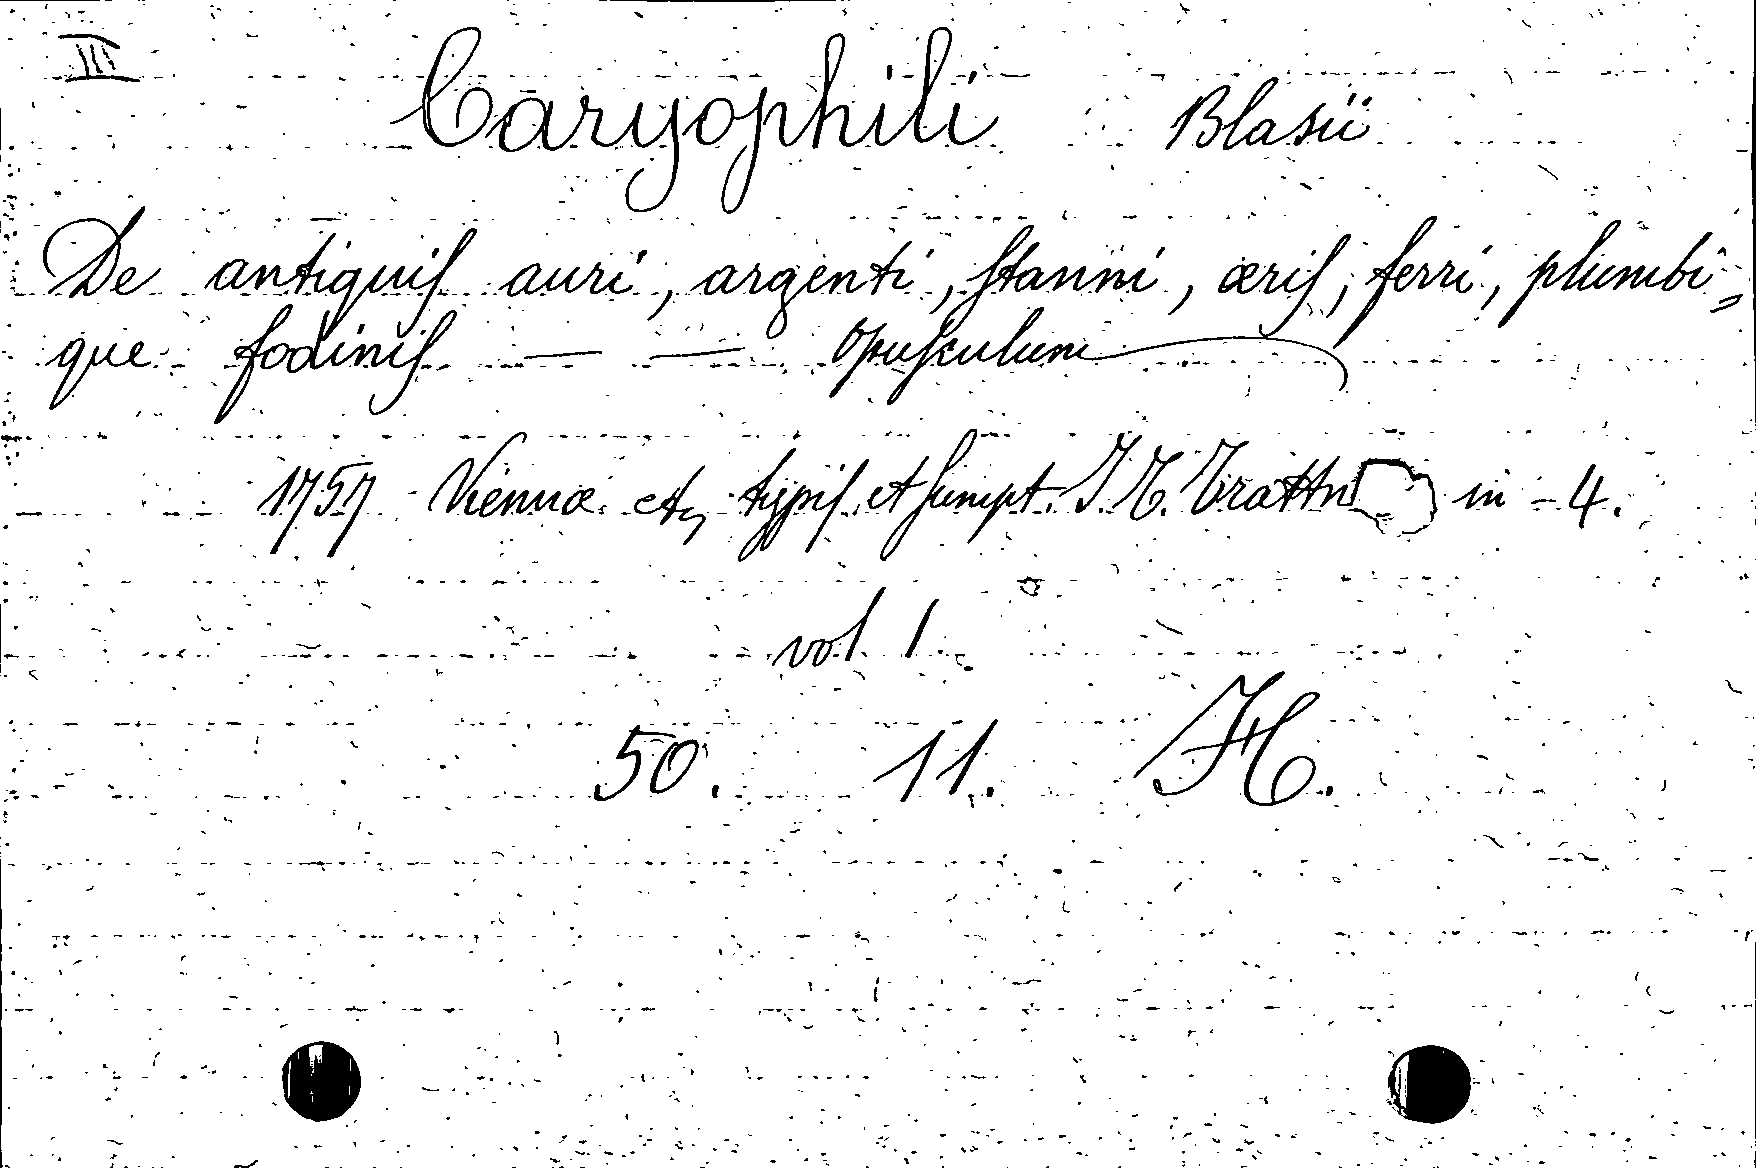 III
Caryophili Blasii
De antiquiſ auri, argenti, ſtanni, æriſ, ferri, plumbi-
que fodiniſ — — Opuſculum
1757 Viennæ etc, typiſ et ſumpt. J. T. Trattn in - 4.
vol 1.
50. 11. H.